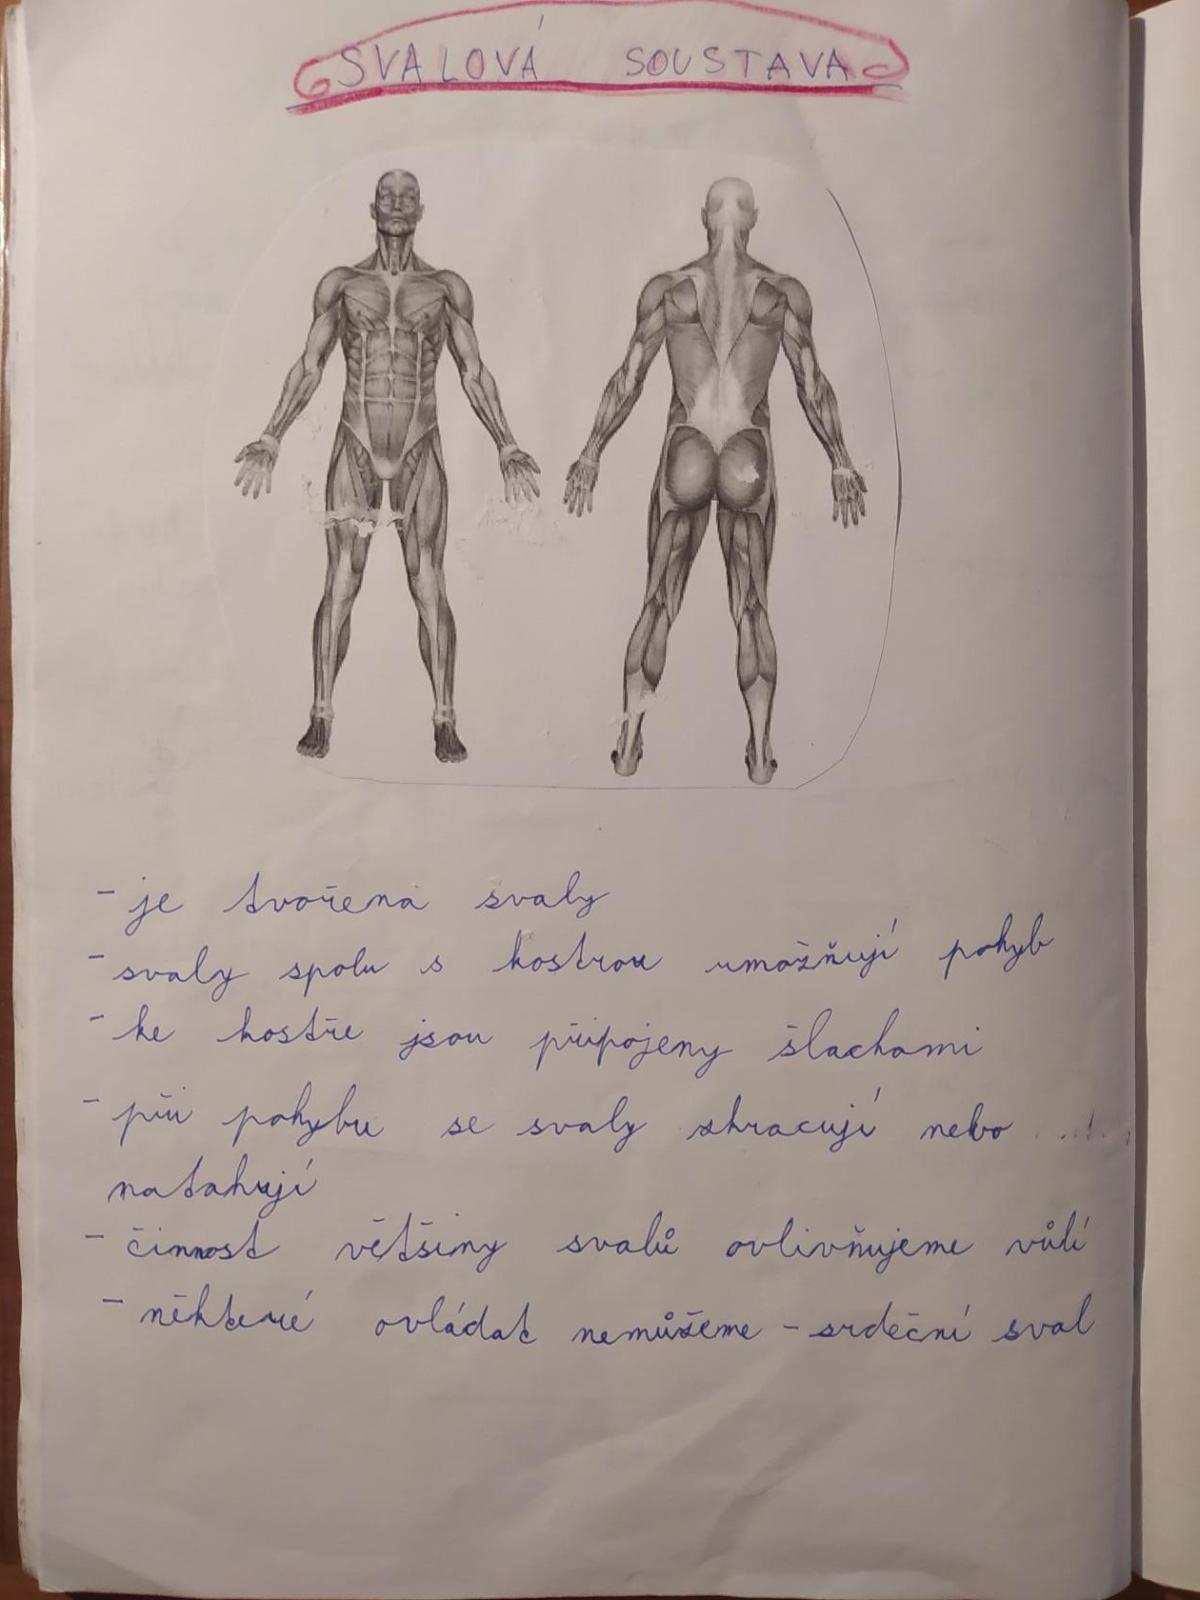 SVALOVÁ SOUSTAVA
- je tvořena svaly
- svaly spolu s kostrou umožňují pohyb
- ke kostře jsou připojeny šlachami
- při pohybu se svaly zkracují nebo
natahují
- činnost většiny svalů ovlivňujeme vůlí
- některé ovládat nemůžeme - srdeční sval